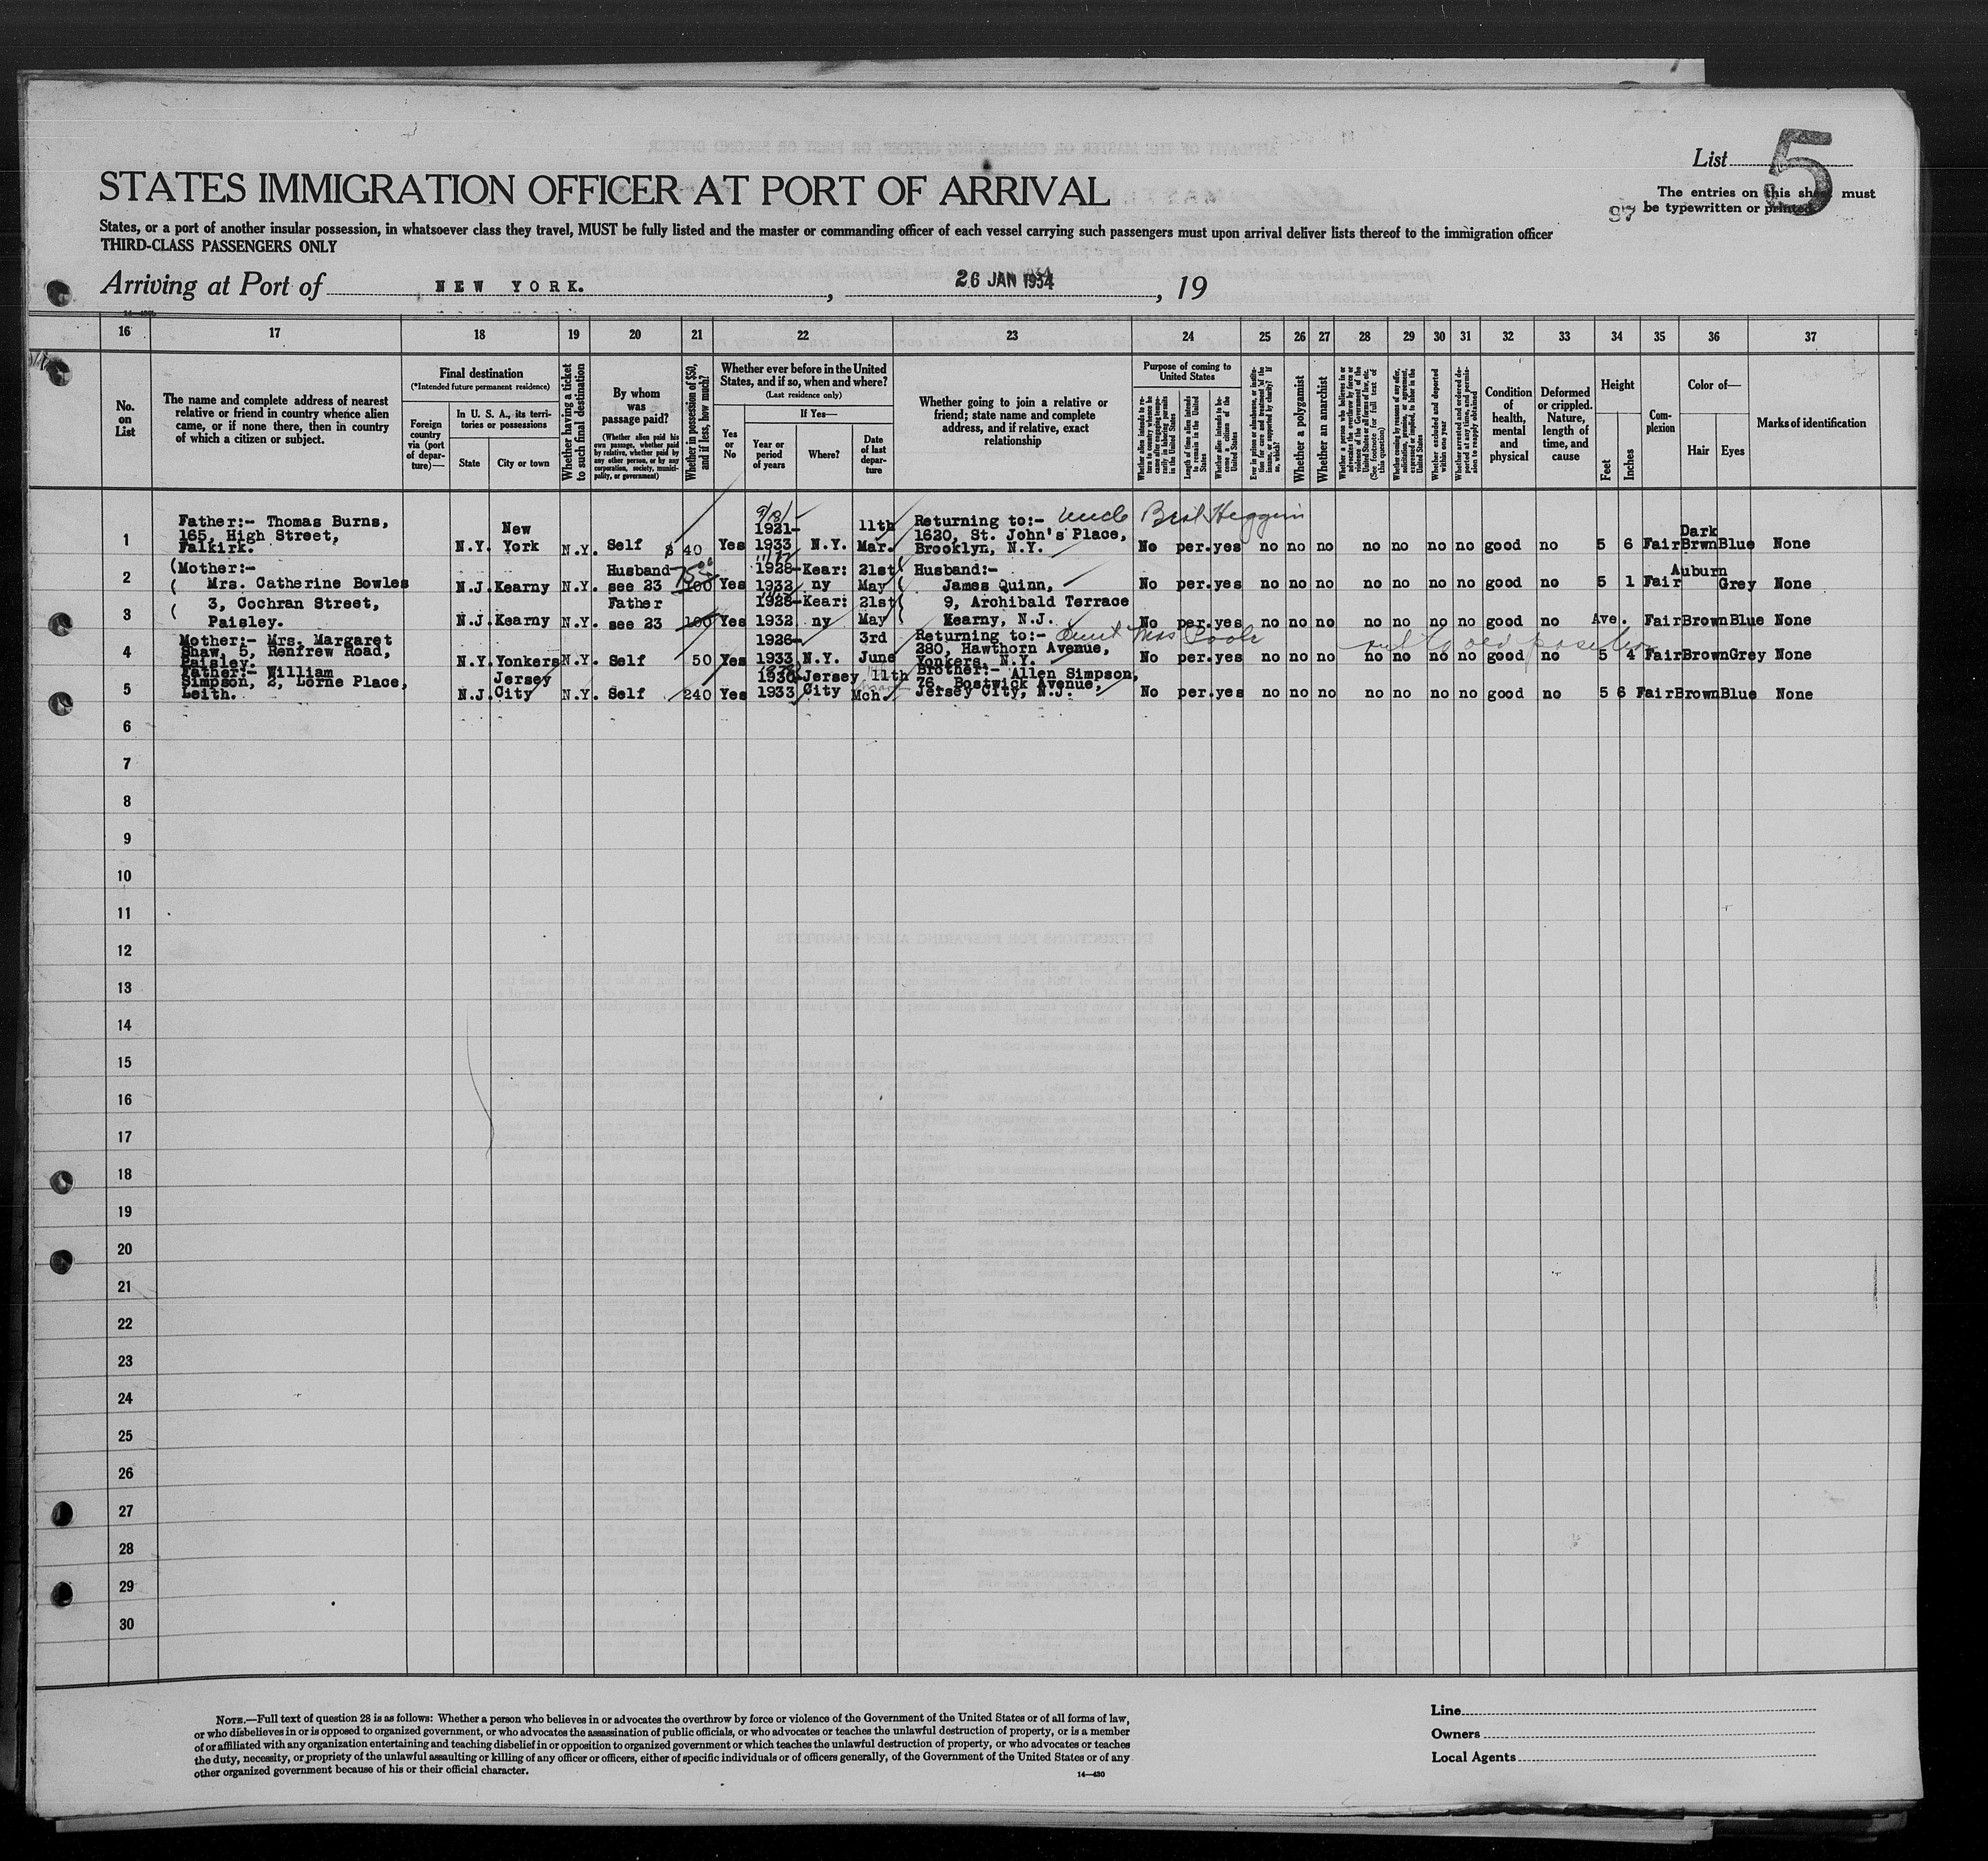 List 5
STATES IMMIGRATION OFFICER AT PORT OF ARRIVAL
The entries on this sheet must
be typewritten or printed
97
States, or a port of another insular possession, in whatsoever class they travel, MUST be fully listed and the master or commanding officer of each vessel carrying such passengers must upon arrival deliver lists thereof to the immigration officer
THIRD-CLASS PASSENGERS ONLY
Arriving at Port of NEW YORK. , 26 JAN 1934 , 19
16 17 18 19 20 21 22 23 24 25 26 27 28 29 30 31 32 33 34 35 36 37
No. on List
The name and complete address of nearest relative or friend in country whence alien came, or if none there, then in country of which a citizen or subject.
Final destination
(*Intended future permanent residence)
Foreign country via (port of departure)—
In U. S. A., its territories or possessions
State
City or town
Whether having a ticket to such final destination
By whom was passage paid?
(Whether alien paid his own passage, whether paid by relative, whether paid by any other person, or by any corporation, society, municipality, or government)
Whether in possession of $50, and if less, how much?
Whether ever before in the United States, and if so, when and where?
(Last residence only)
Yes or No
If Yes—
Year or period of years
Where?
Date of last departure
Whether going to join a relative or friend; state name and complete address, and if relative, exact relationship
Purpose of coming to United States
Length of time alien intends to remain in the United States
Whether alien intends to become a citizen of the United States
Whether a polygamist
Whether an anarchist
Whether excluded and deported within one year
Condition of health, mental and physical
Deformed or crippled. Nature, length of time, and cause
Height
Feet
Inches
Complexion
Color of—
Hair
Eyes
Marks of identification
1 Father:- Thomas Burns, 165, High Street, Falkirk. N.Y. New York N.Y. Self $ 40 Yes 1921- 1933 N.Y. 11th Mar. Returning to:- Uncle 1620, St. John's Place, Brooklyn, N.Y. No per. yes no no no no no no no good no 5 6 Fair Dark Brwn Blue None
2 (Mother:- ( Mrs. Catherine Bowles N.J. Kearny N.Y. Husband see 23 100 Yes 1928- 1932 Kear: ny 21st May Husband:- James Quinn, No per. yes no no no no no no no good no 5 1 Fair Auburn Grey None
3 ( 3, Cochran Street, Paisley. N.J. Kearny N.Y. Father see 23 100 Yes 1928- 1932 Kear: ny 21st May 9, Archibald Terrace Kearny, N.J. No per. yes no no no no no no no good no Ave. Fair Brown Blue None
4 Mother:- Mrs. Margaret Shaw, 5, Renfrew Road, Paisley. N.Y. Yonkers N.Y. Self 50 Yes 1926- 1933 N.Y. 3rd June Returning to:- Aunt Mrs Poole 280, Hawthorn Avenue, Yonkers, N.Y. No per. yes no no no no no no no good no 5 4 Fair Brown Grey None
5 Father:- William Simpson, 2, Lorne Place, Leith. N.J. Jersey City N.Y. Self 240 Yes 1930- 1933 Jersey City 11th Mch. Brother:- Allen Simpson, 76, Bostwick Avenue, Jersey City, N.J. No per. yes no no no no no no no good no 5 6 Fair Brown Blue None
6
7
8
9
10
11
12
13
14
15
16
17
18
19
20
21
22
23
24
25
26
27
28
29
30
NOTE.—Full text of question 28 is as follows: Whether a person who believes in or advocates the overthrow by force or violence of the Government of the United States or of all forms of law,
or who disbelieves in or is opposed to organized government, or who advocates the assassination of public officials, or who advocates or teaches the unlawful destruction of property, or is a member
of or affiliated with any organization entertaining and teaching disbelief in or opposition to organized government or which teaches the unlawful destruction of property, or who advocates or teaches
the duty, necessity, or propriety of the unlawful assaulting or killing of any officer or officers, either of specific individuals or of officers generally, of the Government of the United States or of any
other organized government because of his or their official character.
14—430
Line
Owners
Local Agents